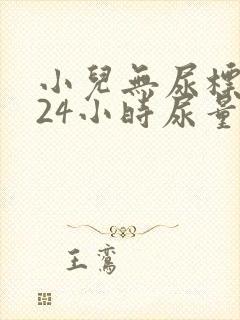 小兒無尿標
24小時尿量
王鸞